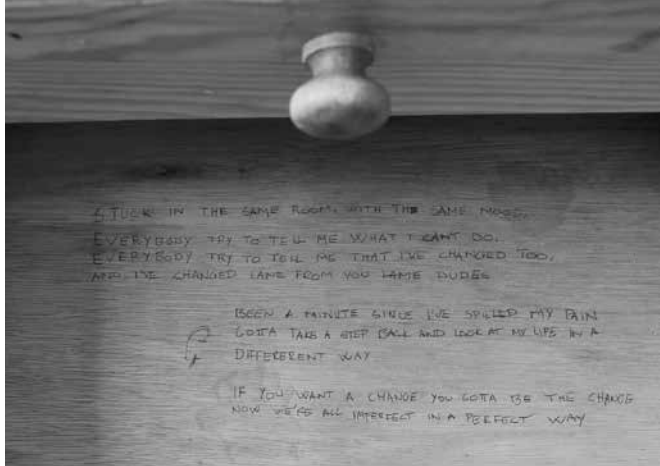 STUCK IN THE SAME ROOM, WITH THE SAME MOOD,
EVERYBODY TRY TO TELL ME WHAT I CANT DO.
EVERYBODY TRY TO TELL ME THAT I'VE CHANGED TOO,
AND I'VE CHANGED LANE FROM YOU LAME DUDES
BEEN A MINUTE SINCE I'VE SPILLED MY PAIN
GOTTA TAKE A STEP BACK AND LOOK AT MY LIFE IN A
DIFFERERENT WAY
IF YOU WANT A CHANGE YOU GOTTA BE THE CHANGE
NOW WE'RE ALL IMPERFECT IN A PERFECT WAY